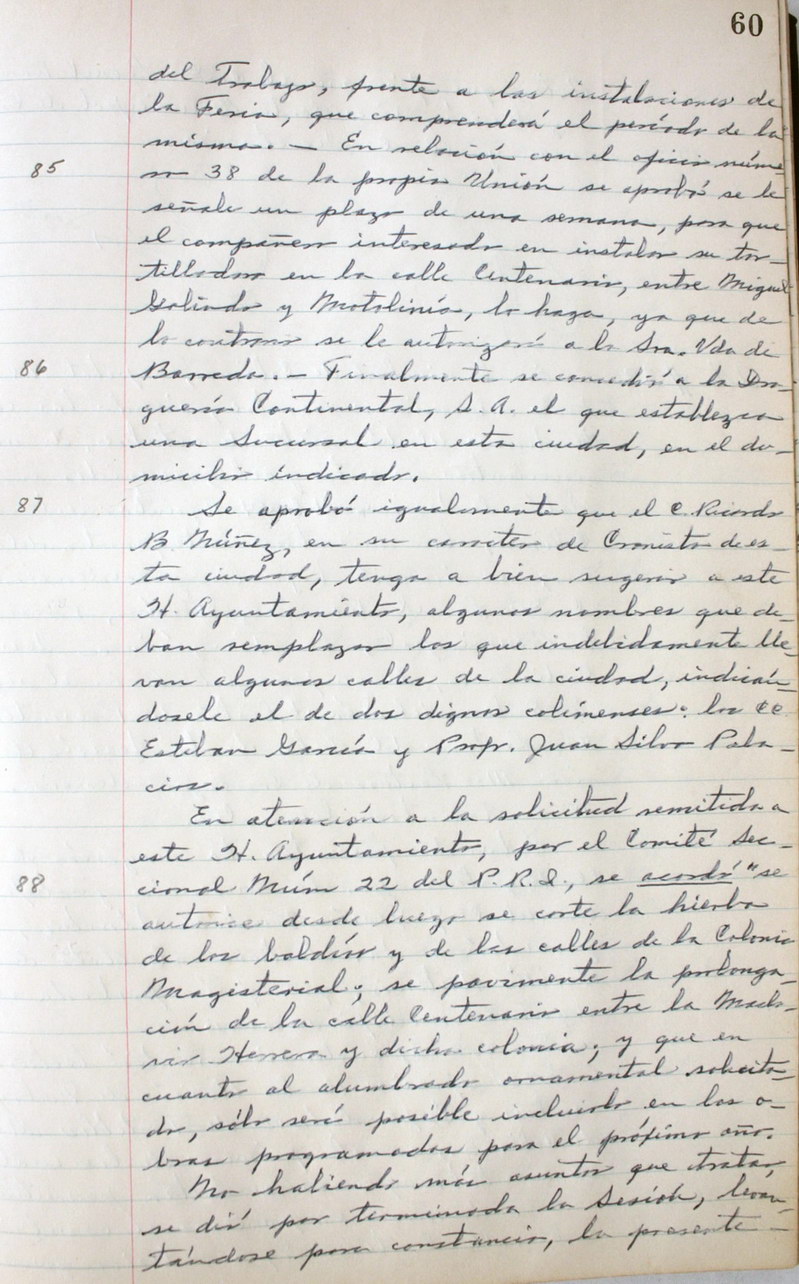 60
del Trabajo, frente a las instalaciones de
la Feria, que comprenderá el período de la
misma. — En relación con el oficio núme-
85
ro 38 de la propia Unión se aprobó se le
señale un plazo de una semana, para que
el compañero interesado en instalar su tor-
tilladora en la calle Centenario, entre Miguel
Galindo y Motolinía, lo haga, ya que de
lo contrario se le autorizará a la Sra. Vda de
86
Barreda. — Finalmente se concedió a la Dro-
guería Continental, S.A. el que establezca
una Sucursal en esta ciudad, en el do-
micilio indicado.
87
Se aprobó igualmente que el C. Ricardo
B. Núñez, en su carácter de Cronista de es-
ta ciudad, tenga a bien sugerir a este
H. Ayuntamiento, algunos nombres que de-
ban remplazar los que indebidamente lle-
van algunas calles de la ciudad, indicán-
dosele el de dos dignos colimenses: los CC.
Esteban García y Profr. Juan Silva Pala-
cios.
En atención a la solicitud remitida a
este H. Ayuntamiento, por el Comité Sec-
88
cional Núm 22 del P.R.I., se acordó "se
autorice desde luego se corte la hierba
de los baldíos y de las calles de la Colonia
Magisterial; se pavimente la prolonga-
ción de la calle Centenario entre la Maclo-
vio Herrera y dicha colonia; y que en
cuanto al alumbrado ornamental solicita-
do, sólo será posible incluirlo en las o-
bras programadas para el próximo año.
No habiendo más asuntos que tratar,
se dió por terminada la Sesión, levan-
tándose para constancia, la presente —